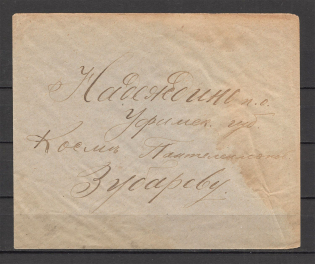 Надеждино п.о.
Уфимск. губ
Козьме Пантелеймонов
Зубареву.